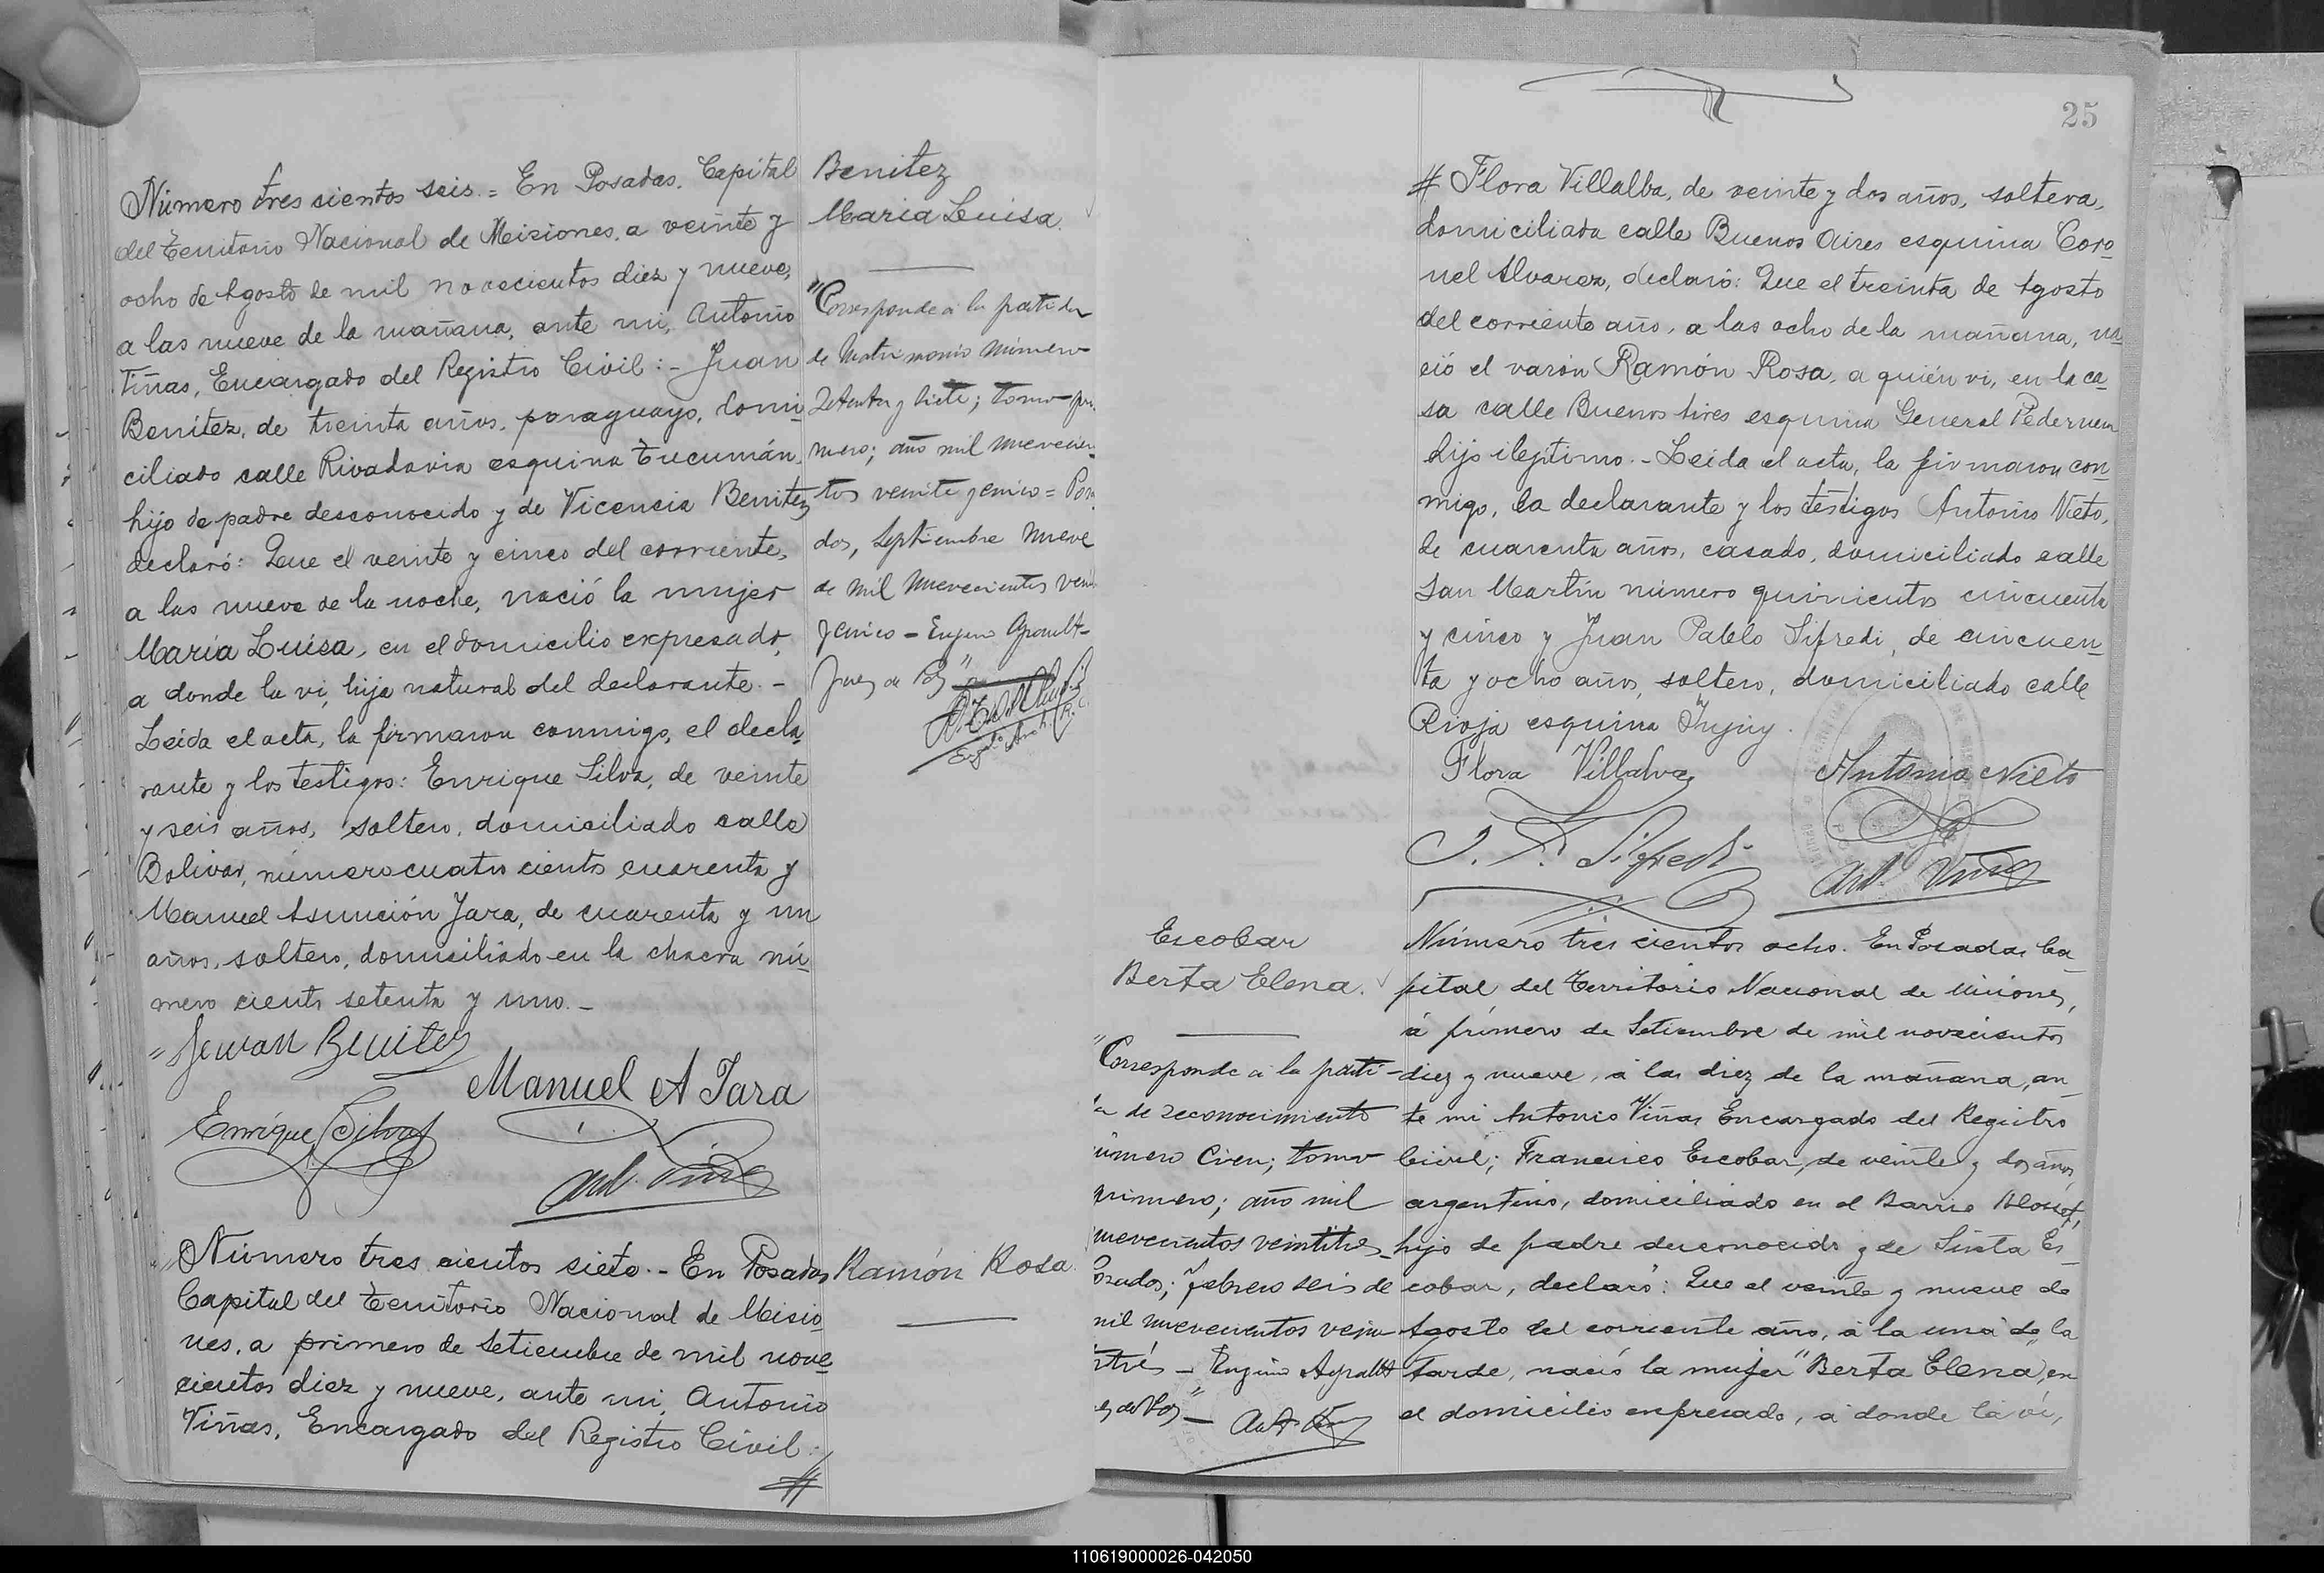 Número tres cientos seis.= En Posadas. Capital
del Territorio Nacional de Misiones, a veinte y
ocho de Agosto de mil novecientos diez y nueve,
a las nueve de la mañana, ante mi, Antonio
Viñas, Encargado del Registro Civil:- Juan
Benítez, de treinta años, paraguayo, domi
ciliado calle Rivadavia esquina Tucumán,
hijo de padre desconocido y de Vicencia Benitez
declaró: Que el veinte y cinco del corriente,
a las nueve de la noche, nació la mujer
María Luisa, en el domicilio expresado,
a donde la vi, hija natural del declarante.-
Leída el acta, la firmaron conmigo, el decla
rante y los testigos: Enrique Silva, de veinte
y seis años, soltero, domiciliado calle
Bolivar, número cuatro ciento cuarenta y
Manuel Asunción Jara, de cuarenta y un
años, soltero, domiciliado en la chacra nú
mero ciento setenta y uno.-
Juan Benitez
Manuel A Jara
Enrique Silva
Ant. Viñas
Número tres cientos siete.- En Posadas
Capital del Territorio Nacional de Misio
nes, a primero de Setiembre de mil nove
cientos diez y nueve, ante mi, Antonio
Viñas, Encargado del Registro Civil:
#
Benitez
Maria Luisa.
"Corresponde a la partida
de Matrimonio Número
Setenta y siete; tomo pri
mero; año mil novecien
tos veinte y cinco = Posa
das, Septiembre nueve
de mil novecientos vein
y cinco - Eugenio Ayrault-
Juez de Paz"
Ramón Rosa.
25
# Flora Villalba, de veinte y dos años, soltera,
domiciliada calle Buenos Aires esquina Coro
nel Alvarez, declaró: Que el treinta de Agosto
del corriente año, a las ocho de la mañana, na
ció el varón Ramón Rosa, a quién vi, en la ca
sa calle Buenos Aires esquina General Pedernera
hijo ilegítimo.- Leida el acta, la firmaron con
migo, la declarante y los testigos Antonio Nieto,
de cuarenta años, casado, domiciliado calle
San Martín número quinientos cincuenta
y cinco y Juan Pablo Sifredi, de cincuen
ta y ocho años, soltero, domiciliado calle
Rioja esquina Jujuy.
Flora Villalva
Antonio Nieto
J. P. Sifredi
Ant. Viñas
Escobar
Berta Elena.
"Corresponde a la parti-
da de reconocimiento
número Cien; tomo
primero; año mil
novecientos veintitres
Posadas; febrero seis de
mil novecientos vein
titrés - Eugenio Ayrault
Juez de Paz"
Número tres cientos ocho. En Posadas Ca
pital del Territorio Nacional de Misiones,
á primero de Setiembre de mil novecientos
diez y nueve, á las diez de la mañana, an
te mi Antonio Viñas Encargado del Registro
Civil; Francisco Escobar, de veinte y dos años,
argentino, domiciliado en el Barrio Blosset,
hijo de padre desconocido y de Sinta Es
cobar, declaró: Que el veinte y nueve de
Agosto del corriente año, á la una de la
tarde, nació la mujer "Berta Elena", en
el domicilio expresado, á donde la ví,
110619000026-042050